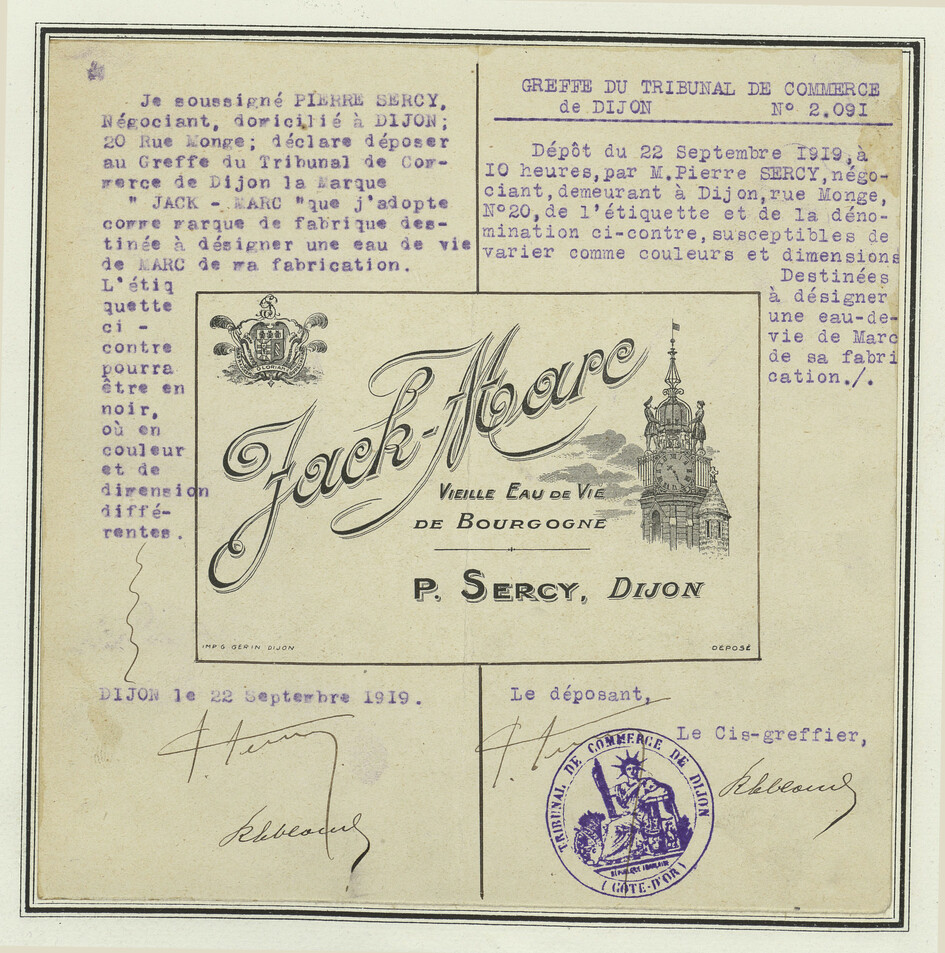 Je soussigné PIERRE SERCY,
Négociant, domicilié à DIJON;
20 Rue Monge; déclare déposer
au Greffe du Tribunal de Com-
merce de Dijon la Marque
" JACK - MARC "que j'adopte
comme marque de fabrique des-
tinée à désigner une eau de vie
de MARC de ma fabrication.
L'étiq
quette
ci -
contre
pourra
être en
noir,
où en
couleur
et de
dimension
diffé-
rentes.
GREFFE DU TRIBUNAL DE COMMERCE
de DIJON N° 2.091
Dépôt du 22 Septembre 1919, à
10 heures, par M.Pierre SERCY, négo-
ciant, demeurant à Dijon, rue Monge,
N°20, de l'étiquette et de la déno-
mination ci-contre, susceptibles de
varier comme couleurs et dimensions
Destinées
à désigner
une eau-de-
vie de Marc
de sa fabri
cation./.
Jack-Marc
VIEILLE EAU DE VIE
DE BOURGOGNE
P. SERCY, DIJON
IMP G. GERIN DIJON
DÉPOSÉ
DIJON le 22 Septembre 1919.
Le déposant,
Le Cis-greffier,
TRIBUNAL DE COMMERCE DE DIJON
RÉPUBLIQUE FRANÇAISE
(CÔTE-D'OR)